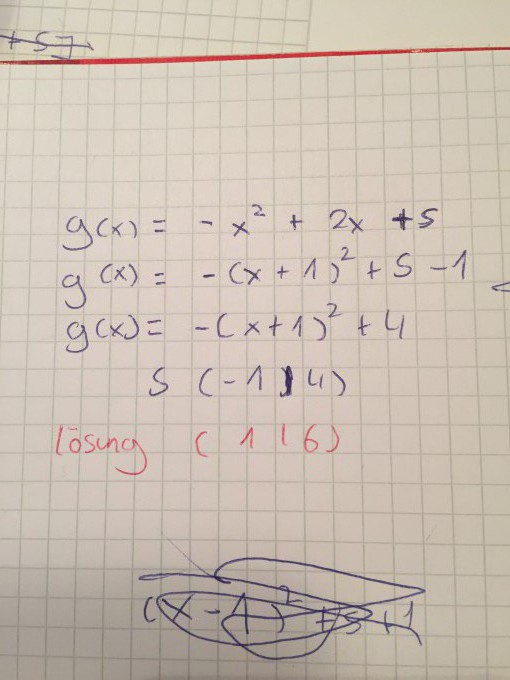 +5)
g(x) = - x² + 2x + 5
g(x) = -(x + 1)² + 5 - 1
g(x) = -(x+1)² + 4
S (-1 | 4)
lösung ( 1 | 6)
(x - 1)² + 5 + 1